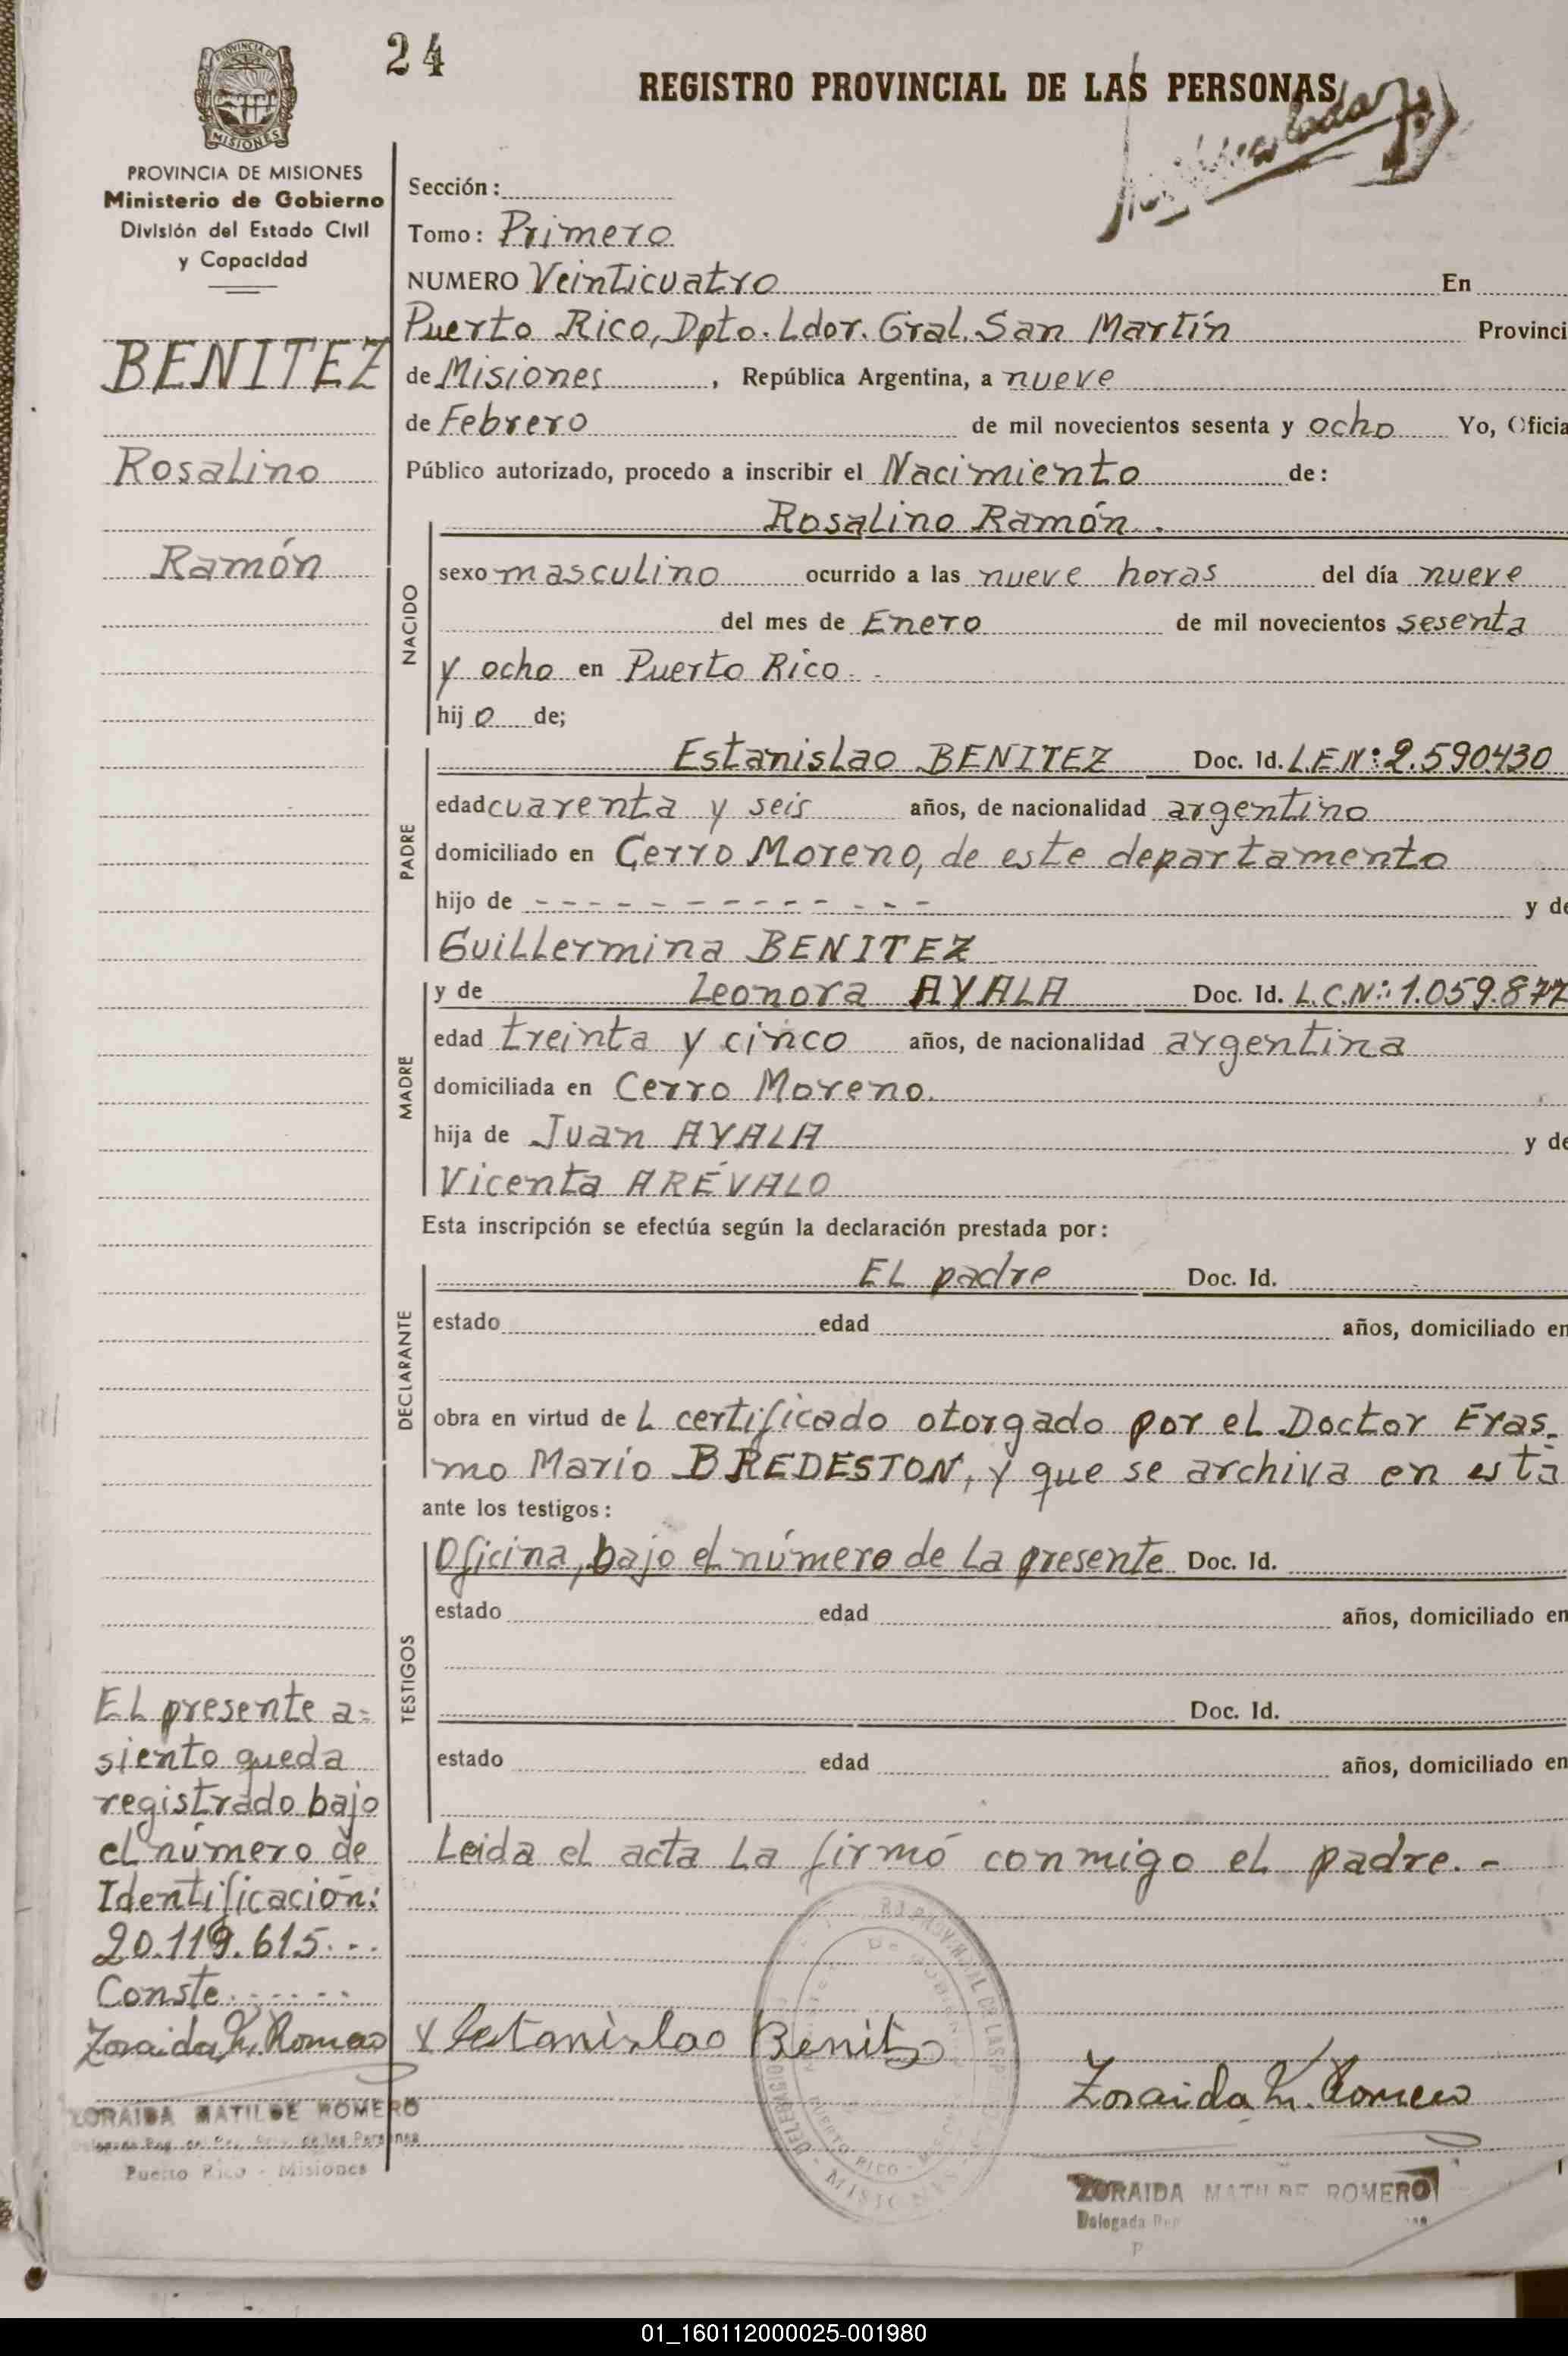 24
REGISTRO PROVINCIAL DE LAS PERSONAS
PROVINCIA DE MISIONES
MISIONES
PROVINCIA DE MISIONES
Ministerio de Gobierno
División del Estado Civil
y Capacidad
BENITEZ
Rosalino
Ramón
Sección:
Tomo: Primero
NUMERO Veinticuatro En
Puerto Rico, Dpto. Ldor. Gral. San Martín Provinci
de Misiones, República Argentina, a nueve
de Febrero de mil novecientos sesenta y ocho Yo, Oficia
Público autorizado, procedo a inscribir el Nacimiento de:
NACIDO
Rosalino Ramón.
sexo masculino ocurrido a las nueve horas del día nueve
del mes de Enero de mil novecientos sesenta
y ocho en Puerto Rico. -
hijo de;
PADRE
Estanislao BENITEZ Doc. Id. L.E.Nº: 2.590430
edad cuarenta y seis años, de nacionalidad argentino
domiciliado en Cerro Moreno, de este departamento
hijo de - - - - - - - - - - - - - y de
Guillermina BENITEZ
MADRE
y de Leonora AYALA Doc. Id. L.C.Nº: 1.059.877
edad treinta y cinco años, de nacionalidad argentina
domiciliada en Cerro Moreno.
hija de Juan AYALA y de
Vicenta ARÉVALO
Esta inscripción se efectúa según la declaración prestada por:
DECLARANTE
El padre Doc. Id.
estado edad años, domiciliado en
obra en virtud del certificado otorgado por el Doctor Eras-
mo Mario BREDESTON, y que se archiva en esta
ante los testigos:
TESTIGOS
Oficina, bajo el número de la presente Doc. Id.
estado edad años, domiciliado en
Doc. Id.
estado edad años, domiciliado en
Leida el acta la firmó conmigo el padre. -
El presente a=
siento queda
registrado bajo
el número de
Identificación:
20.119.615. - -
Conste. - - - - -
Zoraida M. Romero
ZORAIDA MATILDE ROMERO
Puerto Rico - Misiones
x Estanislao Benitez
DELEGACION PUERTO RICO - MISIONES
Zoraida M. Romero
ZORAIDA MATILDE ROMERO
Delegada
01_160112000025-001980